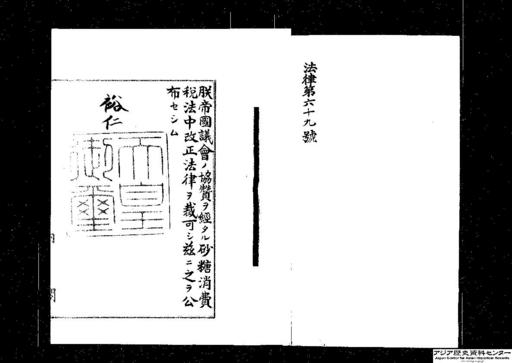 法律第六十九號
朕帝國議會ノ協贊ヲ經タル砂糖消費
税法中改正法律ヲ裁可シ茲ニ之ヲ公
布セシム
裕仁
天皇
御璽
内閣
アジア歴史資料センター
Japan Center for Asian Historical Records